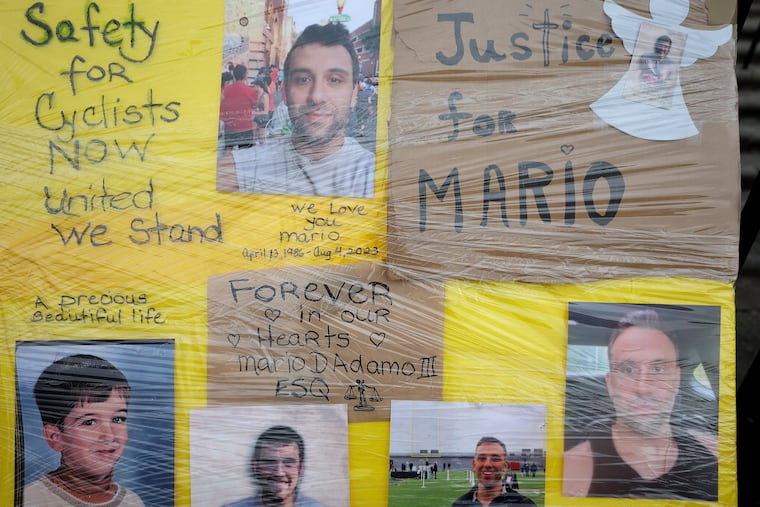 Safety
for
Cyclists
NOW
United
We Stand
We Love
you
mario
April 13, 1986 - Aug 4, 2023
Justice
for
MARIO
A precious
Beautiful life
Forever
in our
Hearts
Mario D Adamo III
ESQ